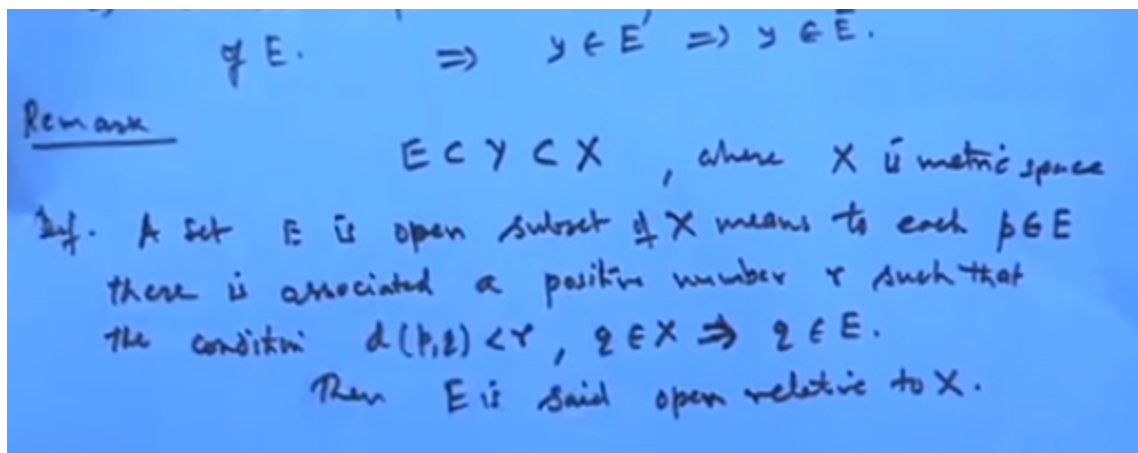 of E. ⇒ y ∈ E' ⇒ y ∈ Ē.
Remark
E ⊂ Y ⊂ X , where X is metric space
Def. A set E is open subset of X means to each p ∈ E
there is associated a positive number r such that
the condition d(p,q) < r , q ∈ X ⇒ q ∈ E.
Then E is said open relative to X.